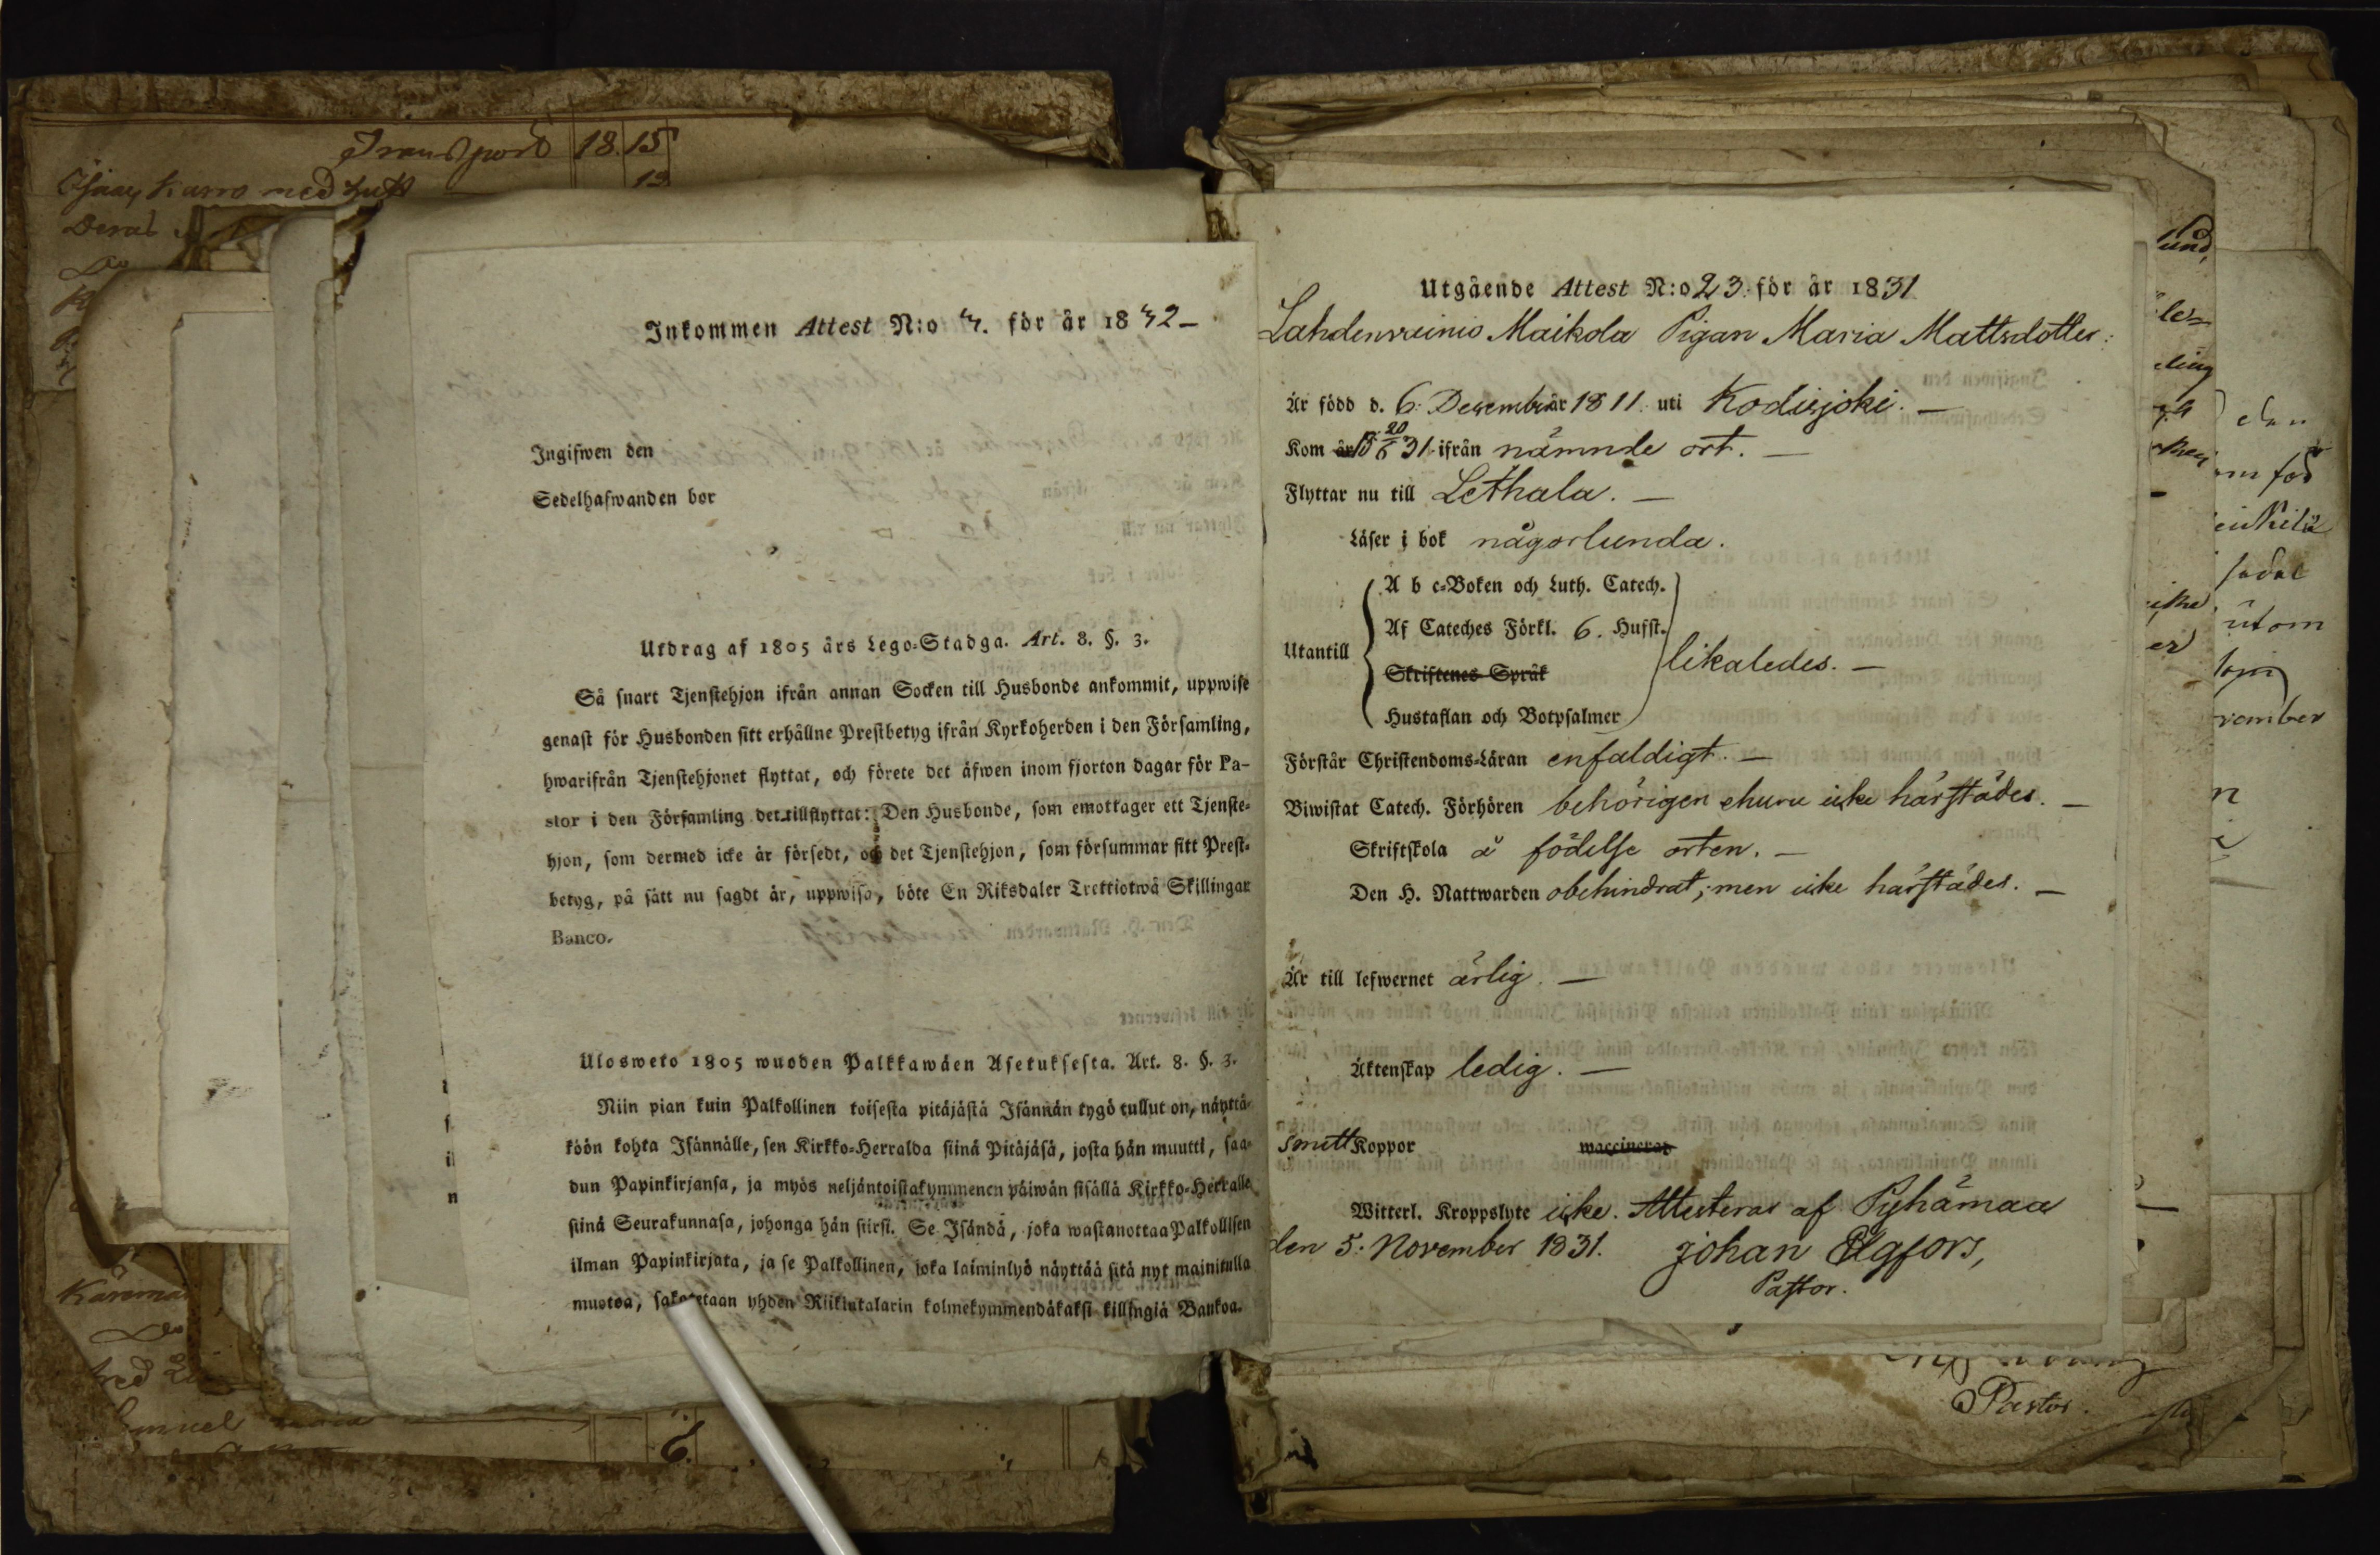 Transport 18. 15
13
Inkommen Attest N:o 4. för år 1842 –
Ingifwen den
Sedelhafwanden bor
Utdrag af 1805 års Lego-Stadga. Art. 8. §. 3.
Så snart Tjenstehjon ifrån annan Socken till Husbonde ankommit, uppwise
genast för Husbonden sitt erhållne Prestbetyg ifrån Kyrkoherden i den Församling,
hwarifrån Tjenstehjonet flyttat, och förete det äfwen inom fjorton dagar för Pa-
stor i den Församling det tillflyttat: Den Husbonde, som emottager ett Tjenste-
hjon, som dermed icke är försedt, och det Tjenstehjon, som försummar sitt Prest-
betyg, på sätt nu sagdt är, uppwisa, böte En Riksdaler Trettiotwå Skillingar
Banco.
Ulosweto 1805 wuoden Palkkawäen Asetuksesta. Art. 8. §. 3.
Niin pian kuin Palkollinen toisesta pitäjästä Isännän tygö tullut on, näyttä-
köön kohta Isännälle, sen Kirkko-Herralda siinä Pitäjäsä, josta hän muutti, saa-
dun Papinkirjansa, ja myös neljäntoistakymmenen päiwän sisällä Kirkko-Herralle
siinä Seurakunnasa, johonga hän siirsi. Se Isändä, joka wastanottaa Palkollisen
ilman Papinkirjata, ja se Palkollinen, joka laiminlyö näyttää sitä nyt mainitulla
muotoa, sakotetaan yhden Riikintalarin kolmekymmendäkaksi killingiä Bankoa.
Utgående Attest N:o 23. för år 1831
Lahdenvainio Maikola Pigan Maria Mattsdotter:
Är född d. 6: December år 1811. uti Kodisjoki. —
Kom år 18 20/6 31. ifrån nämnde ort. —
Flyttar nu till Lethala. —
Läser i bok någorlunda.
A b c-Boken och Luth. Catech.
Af Cateches Förkl. 6. Hufst.
Utantill
Skriftenes Språk
likaledes. —
Hustaflan och Botpsalmer
Förstår Christendoms-Läran enfaldigt. —
Biwistat Catech. Förhören behörigen ehuru icke härstädes. —
Skriftskola å födelse orten. —
Den H. Nattwarden obehindrat, men icke härstädes. —
Är till lefwernet ärlig. —
Äktenskap ledig. —
Smitt Koppor waccinerad
Witterl. Kroppslyte icke. Attesteras af Pyhämaa
den 5: November 1831. Johan Elgfors,
Pastor.
Pastor.